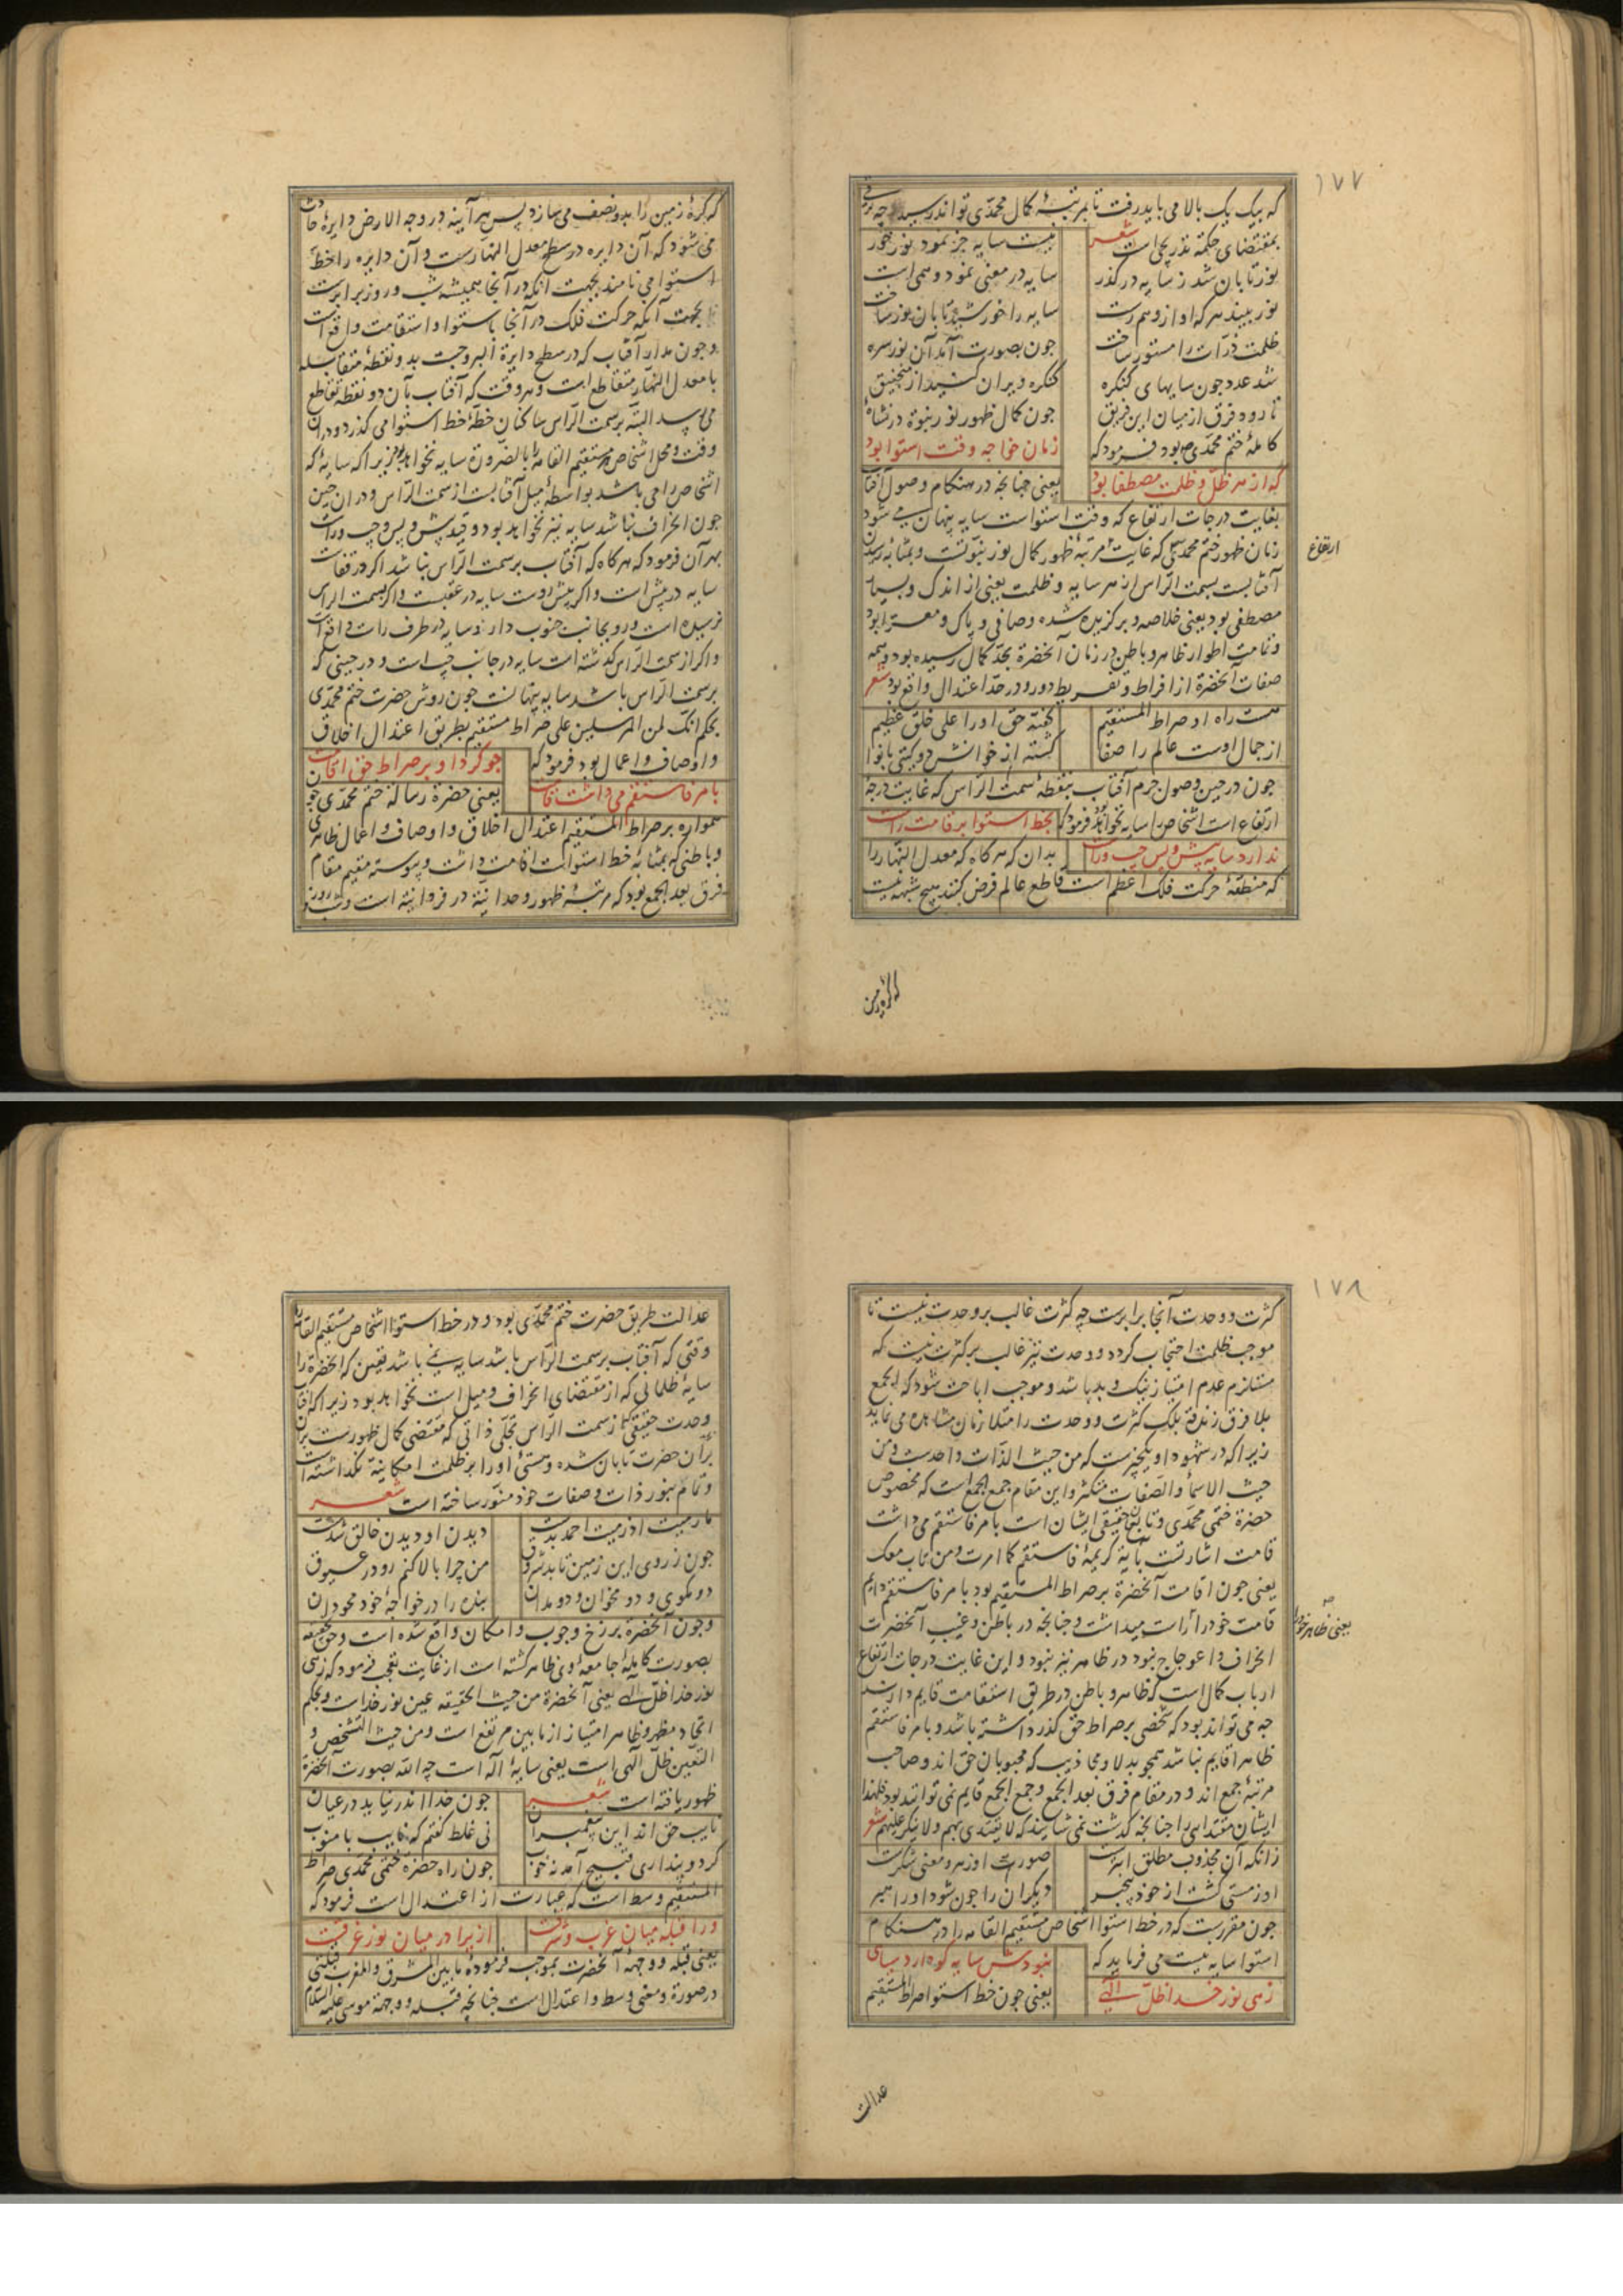 ۱۷۷
که بیک یک بالا می باید رفت تا بمرتبهٔ کمال محمدی تواند رسید چه ترقی
بمقتضای حکمة تدریجی است شعر نیست سایه جز نمود نور خور
نور تابان شد ز سایه در کذر سایه در معنی نمود وهمی است
نور بیند هر که او از وهم رست سایه را خورشید تابان نور ساخت
ظلمت ذرات را مستور ساخت جون بصورت آمد آن نور سره
شد عدد جون سایهای کنکره کنکره ویران کنید از منجنیق
تا رود فرق از میان این فریق جون کمال ظهور نور نبوة در نشاهٔ
کاملهٔ ختم محمدی ص بود فرمود که زمان خواجه وقت استوا بود
که از هر ظلّ و ظلمت مصطفا بود یعنی جنانجه در هنکام وصول آفتاب
بغایت درجات ارتفاع که وقت استواست سایه پنهان می شود
زمان ظهور ختم محمدی که غایت مرتبهٔ ظهور کمال نور نبوّتست و بمثابهٔ رسیدن
ارتفاع
آفتابست بسمت الرّاس از هر سایه و ظلمت یعنی از اندک و بسیار
مصطفی بود یعنی خلاصه و برکزیده شده و صافی و پاک و معرّا بود
و تمامت اطوار ظاهر و باطن در زمان آنحضرة بحدّ کمال رسیده بود و همه
صفات آنحضرة از افراط و تفریط دور و در حدّ اعتدال واقع بود شعر
هست راه او صراط المستقیم کفته حق او را علی خلق عظیم
از جمال اوست عالم را صفا کشته از خوانش دو کیتی با نوا
جون در حین وصول جرم آفتاب بنقطهٔ سمت الرّاس که غایت درجهٔ
ارتفاع است اشخاص را سایه نخواهد بود فرمود که بخط استوا بر قامت راست
ندارد سایه پیش و پس چپ و راست بدان که هر کاه که معدل النهار را
که منطقهٔ حرکت فلک اعظم است قاطع عالم فرض کنند هیچ شبهه نیست
که کرهٔ زمین
که کرهٔ زمین را بدو نصف می سازد پس هر آینه در وجه الارض دایرهٔ حادث
می شود که آن دایره در سطح معدل النهارست و آن دایره را خطّ
استوا می نامند بجهت آنکه در آنجا همیشه شب و روز برابرست
یا بجهت آنکه حرکت فلک در آنجا باستوا و استقامت واقع است
و جون مدار آفتاب که در سطح دایرة البروجست بدو نقطهٔ متقابله
با معدل النهار متقاطع است و هر وقت که آفتاب بآن دو نقطه تقاطع
می رسد البته بر سمت الرّاس ساکنان خطّهٔ خط استوا می کذرد و در آن
وقت و محل اشخاص مستقیم القامة را بالضّرورة سایه نخواهد بود زیرا که سایه که
اشخاص را می باشد بواسطهٔ میل آفتابست از سمت الرّاس و در آن حین
جون انحراف نباشد سایه نیز نخواهد بود و قید پیش و پس و چپ و راست
بهر آن فرمود که هر کاه که آفتاب بر سمت الرّاس نباشد اکر در قفاست
سایه در پیش است و اکر پیش روست سایه در عقبست و اکر بسمت الراس
نرسیده است و رو بجانب جنوب دارد سایه در طرف راست واقع است
و اکر از سمت الرّاس کذشته است سایه در جانب چپ است و در حینی که
بر سمت الرّاس باشد سایه پنهانست جون روش حضرت ختم محمدی
بحکم انّک لمن المرسلین علی صراط مستقیم بطریق اعتدال اخلاق
و اوصاف و اعمال بود فرمود که جو کرد او بر صراط حق اقامت
بامر فاستقم می داشت قامت یعنی حضرة رسالة ختم محمدی جون
همواره بر صراط المستقیم اعتدال اخلاق و اوصاف و اعمال ظاهری
و باطنی که بمثابهٔ خط استواست اقامت داشت و پیوسته مقیم مقام
فرق بعد الجمع بود که مرتبهٔ ظهور وحدانیة در فردانیة است و شب و روز
۱۷۸
کثرت و وحدت آنجا برابرست چه کثرت غالب بر وحدت نیست تا
موجب ظلمت احتجاب کردد و وحدت نیز غالب بر کثرت نیست که
مستلزم عدم امتیاز نیک و بد باشد و موجب اباحت شود که الجمع
بلا فرق زندقة بلک کثرت و وحدت را مثلا زمان مشاهده می نماید
زیرا که در شهود او یکچیزست که من حیث الذّات واحدست و من
حیث الاسماء والصّفات متکثر و این مقام جمع الجمع است که مخصوص
حضرة ختمی محمدی و تابعان حقیقی ایشان است بامر فاستقم می داشت
قامت اشارتست بآیة کریمهٔ فاستقم کما امرت و من تاب معک
یعنی جون اقامت آنحضرة بر صراط المستقیم بود بامر فاستقم دایم
قامت خود را راست میداشت و جنانجه در باطن و غیب آنحضرت
یعنی ظاهر خود
انحراف و اعوجاج نبود در ظاهر نیز نبود و این غایت درجات ارتفاع
ارباب کمال است که ظاهر و باطن در طریق استقامت قایم دارند
جه می تواند بود که شخصی بر صراط حق کذر داشته باشد و بامر فاستقم
ظاهرا قایم نباشد همجو بدلا و مجاذیب که محبوبان حق اند و صاحب
مرتبهٔ جمع اند و در مقام فرق بعد الجمع و جمع الجمع قایم نمی توانند بود فلهذا
ایشان مقتدایی را جنانجه کذشت نمی شایند که لا یقتدی بهم و لا ینکر علیهم شعر
زانکه آن مجذوب مطلق ابترست صورت او زهر و معنی شکرست
او ز مستی کشت از خود بیخبر دیکران را جون شود او راهبر
جون مقررست که در خط استوا اشخاص مستقیم القامه را در هنکام
استوا سایه نیست می فرماید که نبودش سایه کو دارد سیاهی
زهی نور خدا ظلّ الهی یعنی جون خط استوا صراط المستقیم
عدالت
عدالت طریق حضرت ختم محمدی بود و در خط استوا اشخاص مستقیم القامه را
وقتی که آفتاب بر سمت الرّاس باشد سایه نمی باشد یقین که آنحضرة را
سایهٔ ظلمانی که از مقتضای انحراف و میل است نخواهد بود زیرا که آفتاب
وحدت حقیقی از سمت الرّاس تجلّی ذاتی که مقتضی کمال ظهورست بر آن
بر آن حضرت تابان شده و هستیٔ او را بر ظلمت امکانیة نکذاشته است
و تمام بنور ذات و صفات خود منوّر ساخته است شعر
ما رمیت اذ رمیت احمد بدست دیدن او دیدن خالق شدست
جون ز روی این زمین تابد شروق من چرا بالا کنم رو در عیوق
دو مکوی و دو مخوان و دو مدان بنده را در خواجهٔ خود محو دان
و جون آنحضرة برزخ وجوب و امکان واقع شده است و حق بحقیقه
بصورت کاملهٔ جامعهٔ وی ظاهر کشته است از غایت تعجب فرمود که زهی
نور خدا ظلّ الهی یعنی آنحضرة من حیث الحقیقه عین نور خداست و بحکم
اتحاد مظهر و ظاهر امتیاز از ما بین مرتفع است و من حیث التشخص و
التعین ظلّ الهی است یعنی سایهٔ اله است چه الله بصورت آنحضرة
ظهور یافته است شعر جون خدا اندر نیاید در عیان
نایب حق اند این پیغمبران نی غلط کفتم که نایب با منوب
کر دو پنداری قبیح آمد نه خوب جون راه حضرة ختمی محمدی صراط
المستقیم وسط است که عبارت از اعتدال است فرمود که
ورا قبله میان غرب و شرقست ازیرا در میان نور غرقست
یعنی قبله و وجههٔ آنحضرت بموجب فرمودهٔ ما بین المشرق والمغرب قبلتی
در صورة و معنی وسط و اعتدال است جنانجه قبله و وجههٔ موسی علیه السّلام